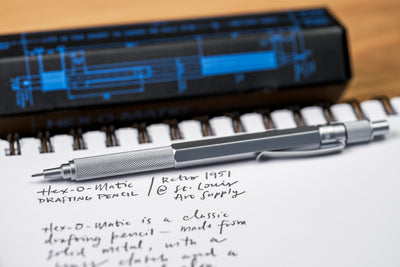 HEX-O-MATIC
Hex-O-Matic
DRAFTING PENCIL
/ Retro 1951
@ St. Louis
Art Supply
Hex-O-Matic is a classic
drafting pencil — made from
solid metal, with a
brass clutch and a